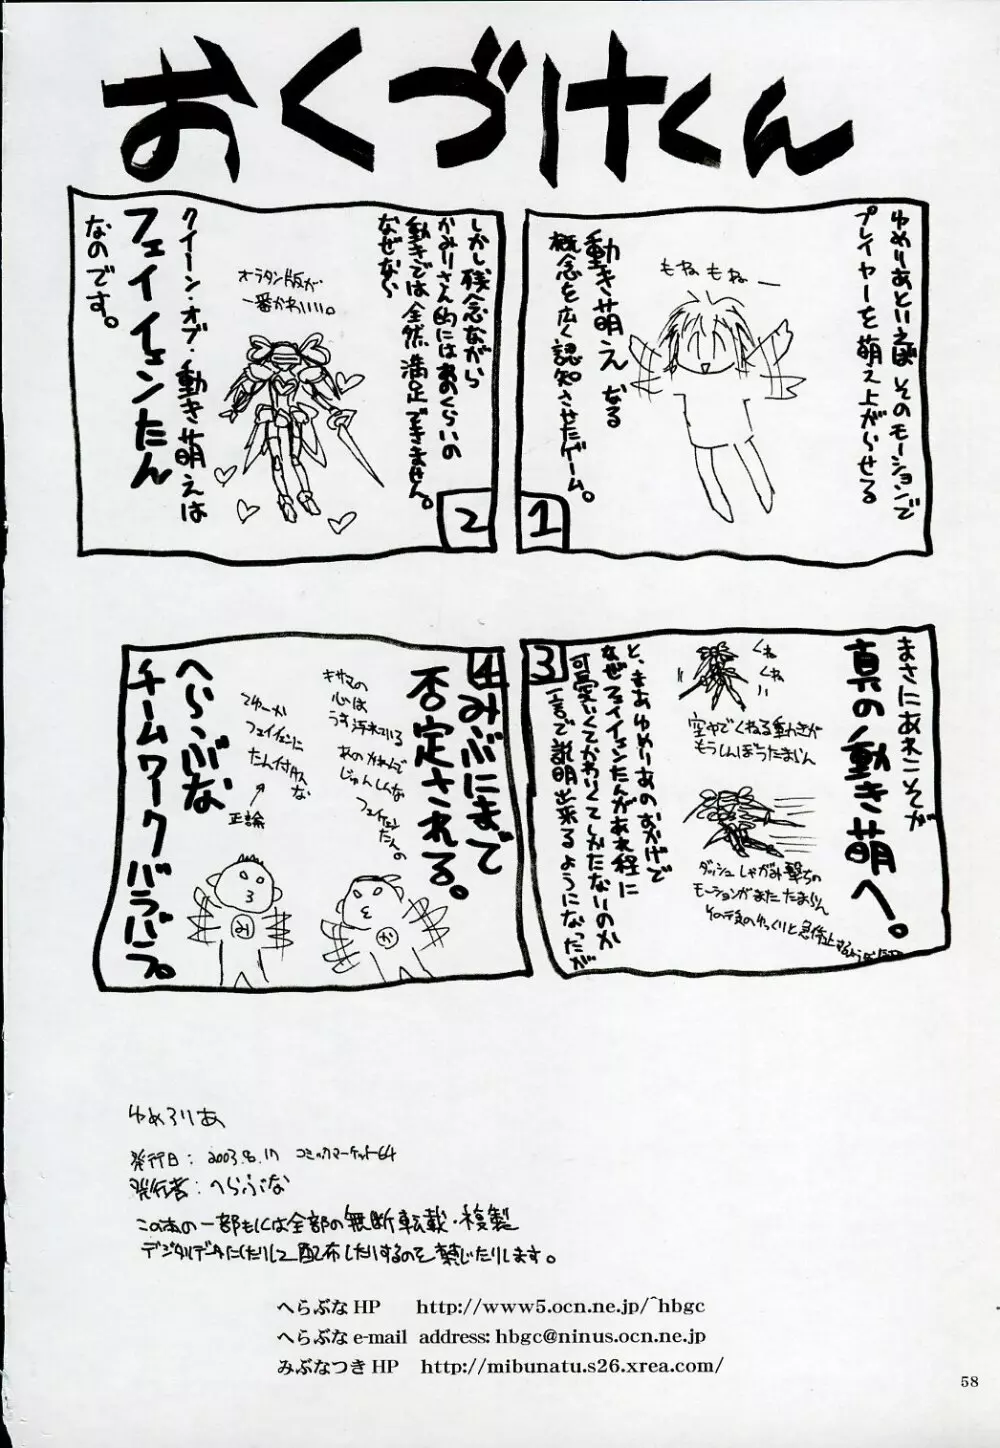 おくづけくん
ゆめりあといえば そのモーションで
プレイヤーを萌え上がらせる
もねもねー
動き萌えなる
概念を広く認知させたゲーム。
1
しかし残念ながら
かみりさん的にはあのくらいの
動きでは全然、満足できません。
なぜなら
オラタン版が
一番かわいい。
クイーン・オブ・動き萌えは
フェイイェンたん
なのです。
2
まさにあれこそが
真の動き萌へ。
くね
くね
空中でくねる動きが
もうしんぼうたまらん
ダッシュしゃがみ撃ちの
モーションがまたたまらん
と、まあゆめりあのおかげで
なぜフェイイェンたんがあれ程に
可愛いくてかわいくてしかたないのか
一言で説明出来るようになったが
3
4
みぶにまで
否定される。
キサマの
心は
うす汚れている
あのかれんで
じゅんしんな
フェイイェン
たんの
てゆーか
フェイイェンに
たん付けんな
正論
み
か
へらぶな
チームワークバラバラ。
ゆめろりあ
発行日：2003.8.17 コミックマーケット64
発行者：へらぶな
この本の一部もしくは全部の無断転載・複製
デジタルデータにしたりして配布したりするのを禁じたりします。
へらぶなHP http://www5.ocn.ne.jp/~hbgc
へらぶな e-mail address: hbgc@ninus.ocn.ne.jp
みぶなつきHP http://mibunatu.s26.xrea.com/
58